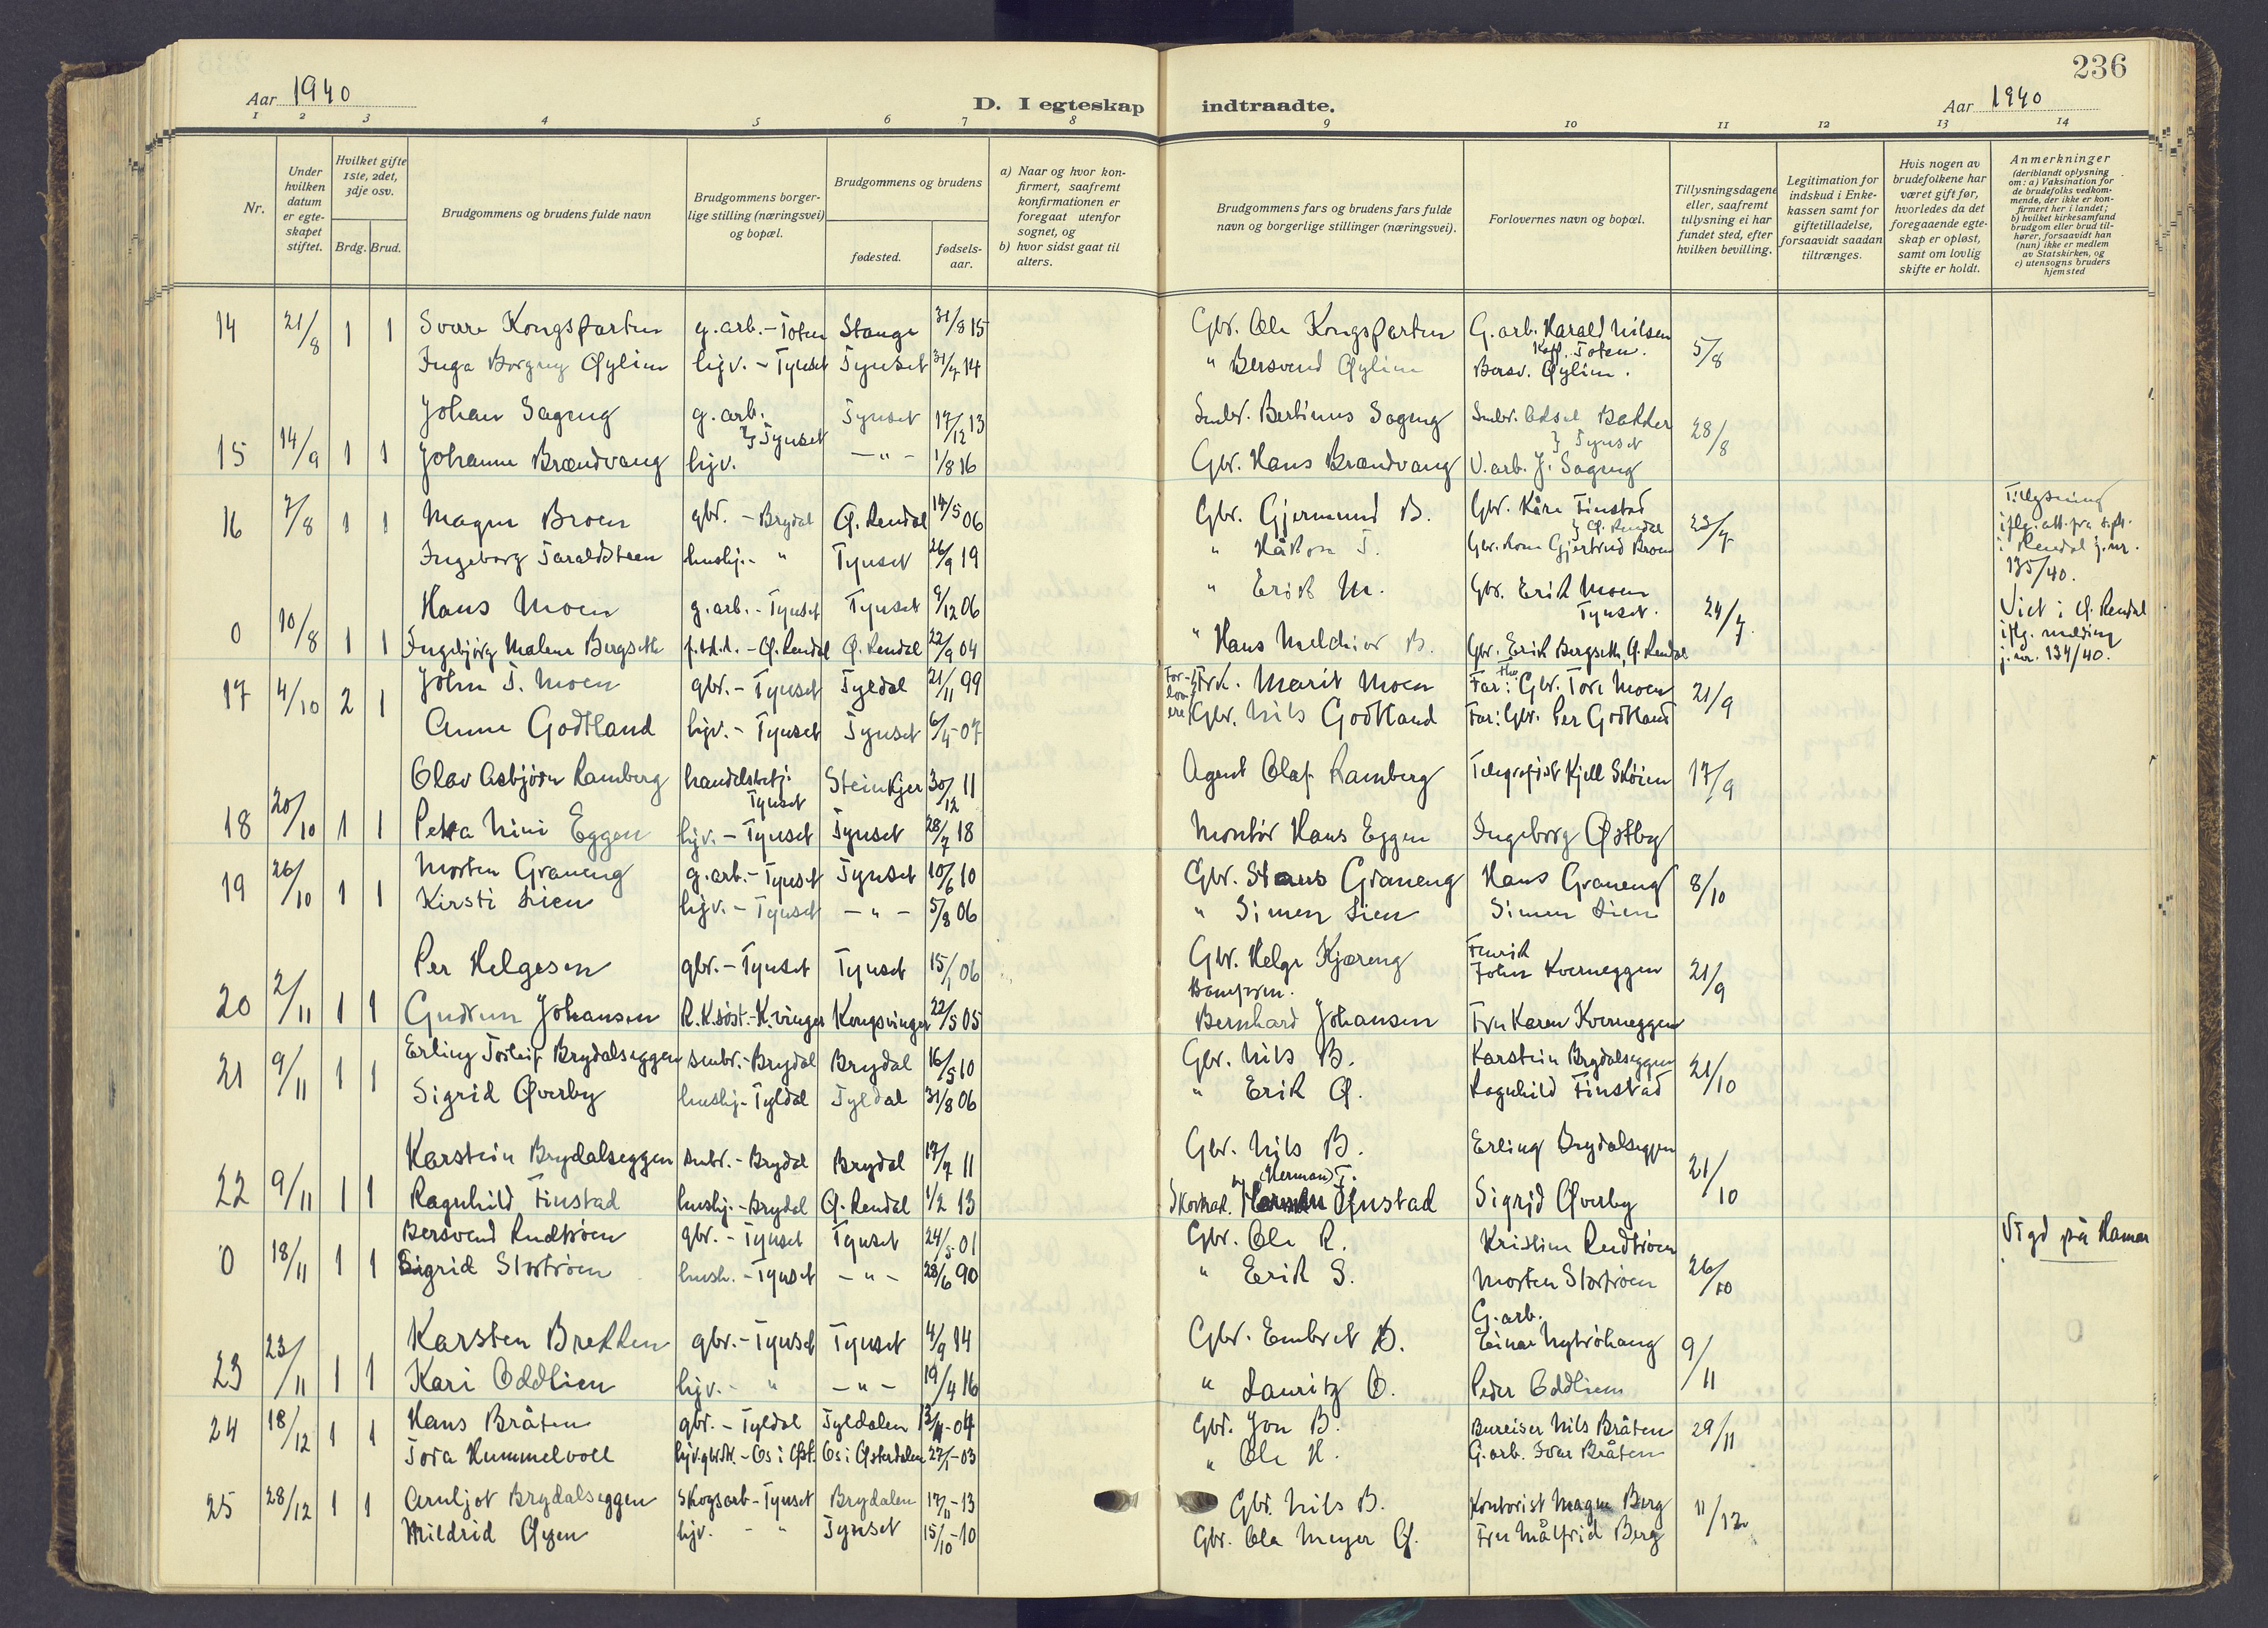 236
Aar 1940
D. I egteskap indtraadte.
Aar 1940
1 2 3 4 5 6 7 8 9 10 11 12 13 14
Nr.
Under hvilken datum er egteskapet stiftet.
Hvilket gifte 1ste, 2det, 3dje osv.
Brdg. Brud.
Brudgommens og brudens fulde navn
Brudgommens borgerlige stilling (næringsvei) og bopæl.
Brudgommens og brudens
fødested.
fødselsaar.
a) Naar og hvor konfirmert, saafremt konfirmationen er foregaat utenfor sognet, og
b) hvor sidst gaat til alters.
Brudgommens fars og brudens fars fulde navn og borgerlige stillinger (næringsvei).
Forlovernes navn og bopæl.
Tillysningsdagene eller, saafremt tillysning ei har fundet sted, efter hvilken bevilling.
Legitimation for indskud i Enkekassen samt for giftetilladelse, forsaavidt saadan tiltrænges.
Hvis nogen av brudefolkene har været gift før, hvorledes da det foregaaende egteskap er opløst, samt om lovlig skifte er holdt.
Anmerkninger (deriblandt oplysning om: a) Vaksination for de brudefolks vedkommende, der ikke er konfirmert her i landet; b) hvilket kirkesamfund brudgom eller brud tilhører, forsaavidt han (hun) ikke er medlem av Statskirken, og c) utensogns bruders hjemsted
14 21/8 1 1 Sverre Kongsparten g.arb. - Toten Stange 31/8 15 Gbr. Ole Kongsparten G.arb. Harald Nilsen Kapp, Toten. 5/8
Inga Borgny Øylien hjv. - Tynset Tynset 31/7 14 " Bersvend Øylien Bersv. Øylien.
Johan Sageng g.arb. Tynset 17/12 13 Småbr. Bertinus Sageng Småbr. Adsel Bakken } Tynset 28/8
15 14/9 1 1 Johanne Brændvang hjv. } Tynset - " - 1/8 16 Gbr. Hans Brændvang V.arb. J. Sageng
16 7/8 1 1 Magne Broen gbr. - Brydal Ø. Rendal 14/5 06 Gbr. Gjermund B. Gbr. Kåre Finstad } Ø. Rendal 23/7 Tillysning iflg. att. fra spr. i Rendal j.nr. 135/40.
Ingeborg Taraldsteen hushj. - " Tynset 26/9 19 " Håkon T. Gbr. kone Gjertrud Broen
Hans Moen g.arb. - Tynset Tynset 9/12 06 " Erik M. Gbr. Erik Moen Tynset. 24/7 Viet i Ø. Rendal iflg. melding j.nr. 134/40.
0 10/8 1 1 Ingebjørg Malene Bergseth - Ø. Rendal Ø. Rendal 22/9 04 " Hans Melchior B. Gbr. Erik Bergseth, Ø. Rendal
17 4/10 2 1 John T. Moen gbr. - Tynset Tyldal 21/11 99 Forlovere { Frk. Marit Moen Far: Gbr. Tore Moen 21/9
Anne Godtland hjv. - Tynset Tynset 6/4-07 Gbr. Nils Godtland Far: Gbr. Per Godtland
Olav Asbjørn Ramberg handelsbetj. Tynset Steinkjer 30/12 11 Agent Olaf Ramberg Telegrafist Kjell Skøien 17/9
18 20/10 1 1 Petra Nini Eggen hjv. - Tynset Tynset 28/7 18 Montør Hans Eggen Ingeborg Østby
19 26/10 1 1 Morten Graneng g.arb. - Tynset Tynset 10/6 10 Gbr. Hans Graneng Hans Graneng 8/10
Kirsti Lien hjv. - Tynset - " - 5/8 06 " Simen Lien Simen Lien
Per Helgesen gbr. - Tynset Tynset 15/1 06 Gbr. Helge Kjæreng Fenrik John Kverneggen 21/9
20 2/11 1 1 Gudrun Johansen R.K.søst. - K.vinger Kongsvinger 22/5 05 Bernhard Johansen Fru Karen Kverneggen
21 9/11 1 1 Erling Torleif Brydalseggen småbr. - Brydal Brydal 16/5 10 Gbr. Nils B. Karstein Brydalseggen 21/10
Sigrid Øverby hushj. - Tyldal Tyldal 31/8 06 " Erik Ø. Ragnhild Finstad
Karstein Brydalseggen småbr. - Brydal Brydal 17/7 11 Gbr. Nils B. Erling Brydalseggen 21/10
22 9/11 1 1 Ragnhild Finstad hushj. - Brydal Ø. Rendal 1/2 13 " (Herman) F. Finstad Sigrid Øverby
Bersvend Rudtrøen gbr. - Tynset Tynset 24/5-01 Gbr. Ole R. Kristine Rudtrøen 26/10 Vigd på Hamar
0 18/11 1 1 Sigrid Stortrøen hush. - Tynset - " - 28/6 90 " Erik S. Morten Stortrøen
Karsten Brekken gbr. - Tynset Tynset 4/9 14 Gbr. Embret B. G.arb. Einar Nytrøhaug 9/11
23 23/11 1 1 Kari Oddlien hjv. - " - " - 19/4 16 " Lauritz O. Peder Oddlien
24 18/12 1 1 Hans Bråten gbr. - Tyldal Tyldalen 13/4-04 Gbr. Jon B. Bureiser Nils Bråten 29/11
Tora Hummelvoll hjv. gbr.dt. - Os i Øst. Os i Østerdalen 27/1-03 " Ole H. G.arb. Ivar Bråten
25 28/12 1 1 Arnljot Brydalseggen Skogsarb - Tynset Brydalen 17/11-13 Gbr. Nils B. Kontorist Magne Berg 11/12
Mildrid Øyen hjv. - " Tynset 15/10-10 Gbr. Ola Meyer Ø. Fru Målfrid Berg